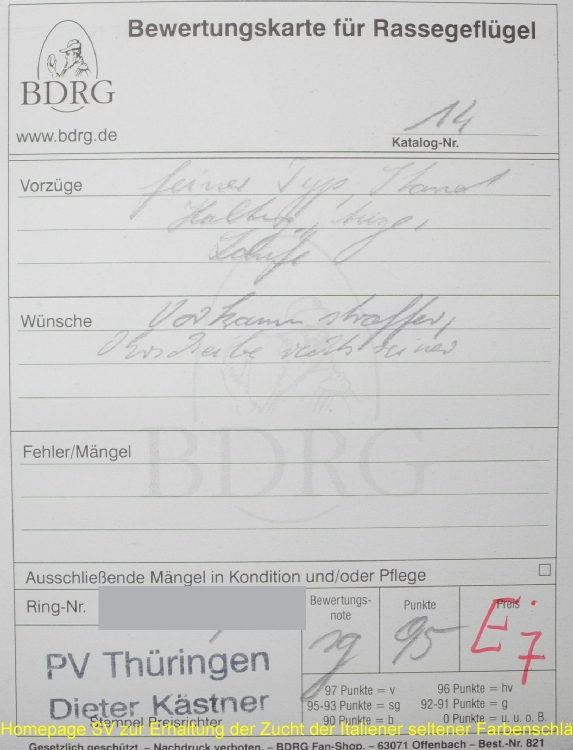 Bewertungskarte für Rassegeflügel
BDRG
www.bdrg.de
14
Katalog-Nr.
Vorzüge feiner Typ, Stand
Haltung, Auge,
Läufe
Wünsche Vorkamm straffer,
Ohrscheibe reiner
BDRG
Fehler/Mängel
Ausschließende Mängel in Kondition und/oder Pflege
Ring-Nr.
Bewertungs-
note
sg
Punkte
95
Preis
E. 7
PV Thüringen
Dieter Kästner
Stempel Preisrichter
97 Punkte = v 96 Punkte = hv
95-93 Punkte = sg 92-91 Punkte = g
90 Punkte = b 0 Punkte = u. u. o. B.
Homepage SV zur Erhaltung der Zucht der Italiener seltener Farbenschlä
Gesetzlich geschützt. – Nachdruck verboten. – BDRG Fan-Shop. – 63071 Offenbach – Best.-Nr. 821